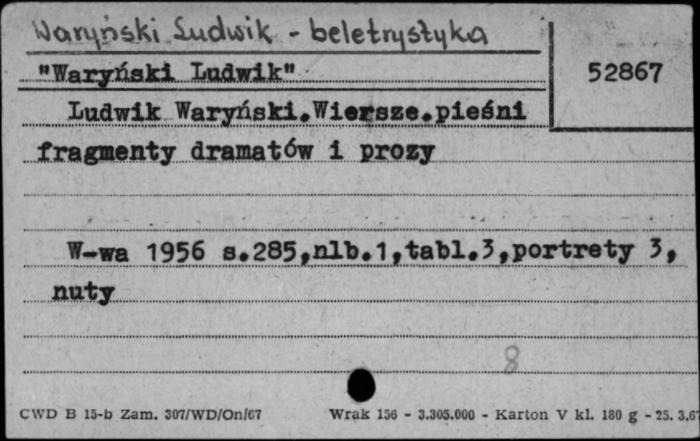 Waryński Ludwik - beletrystyka
"Waryński Ludwik"
52867
Ludwik Waryński.Wiersze.pieśni
fragmenty dramatów i prozy
W-wa 1956 s.285,nlb.1,tabl.3,portrety 3,
nuty
8
CWD B 15-b Zam. 307/WD/On/67
Wrak 156 - 3.305.000 - Karton V kl. 180 g - 25. 3,67